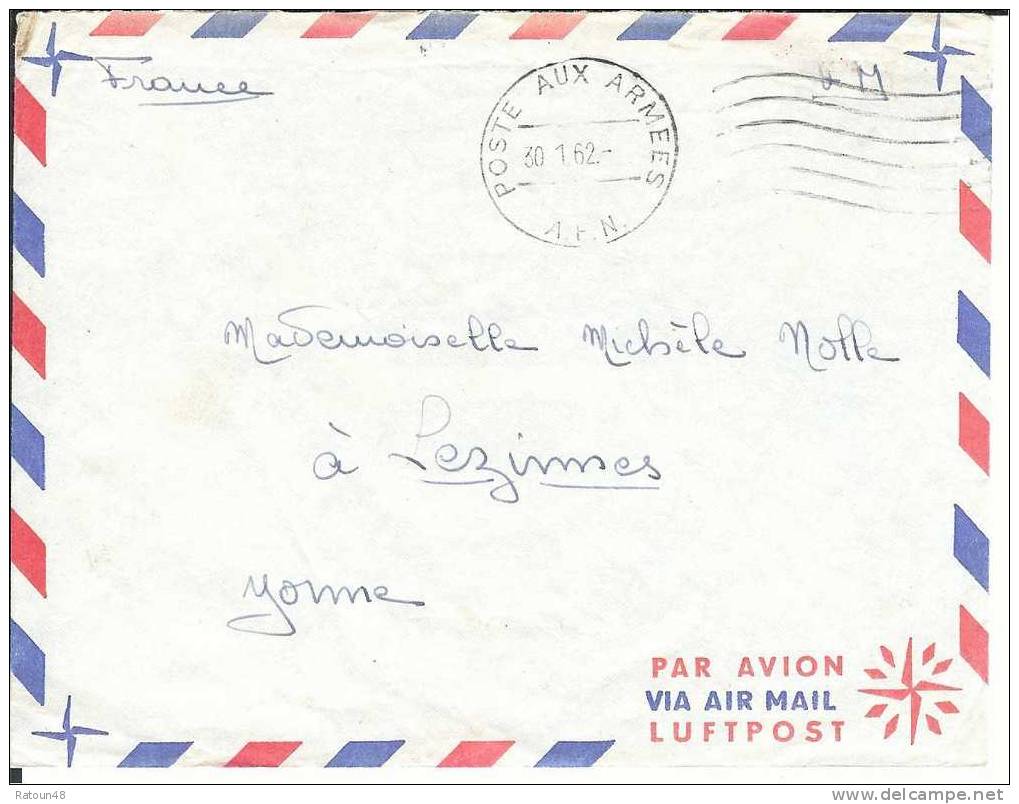 France
POSTE AUX ARMEES
30 1.62.-
A.F.N.
F M
Mademoiselle Michèle Nolle
à Lezinnes
Yonne
PAR AVION
VIA AIR MAIL
LUFTPOST
Ratoun48
www.delcampe.net